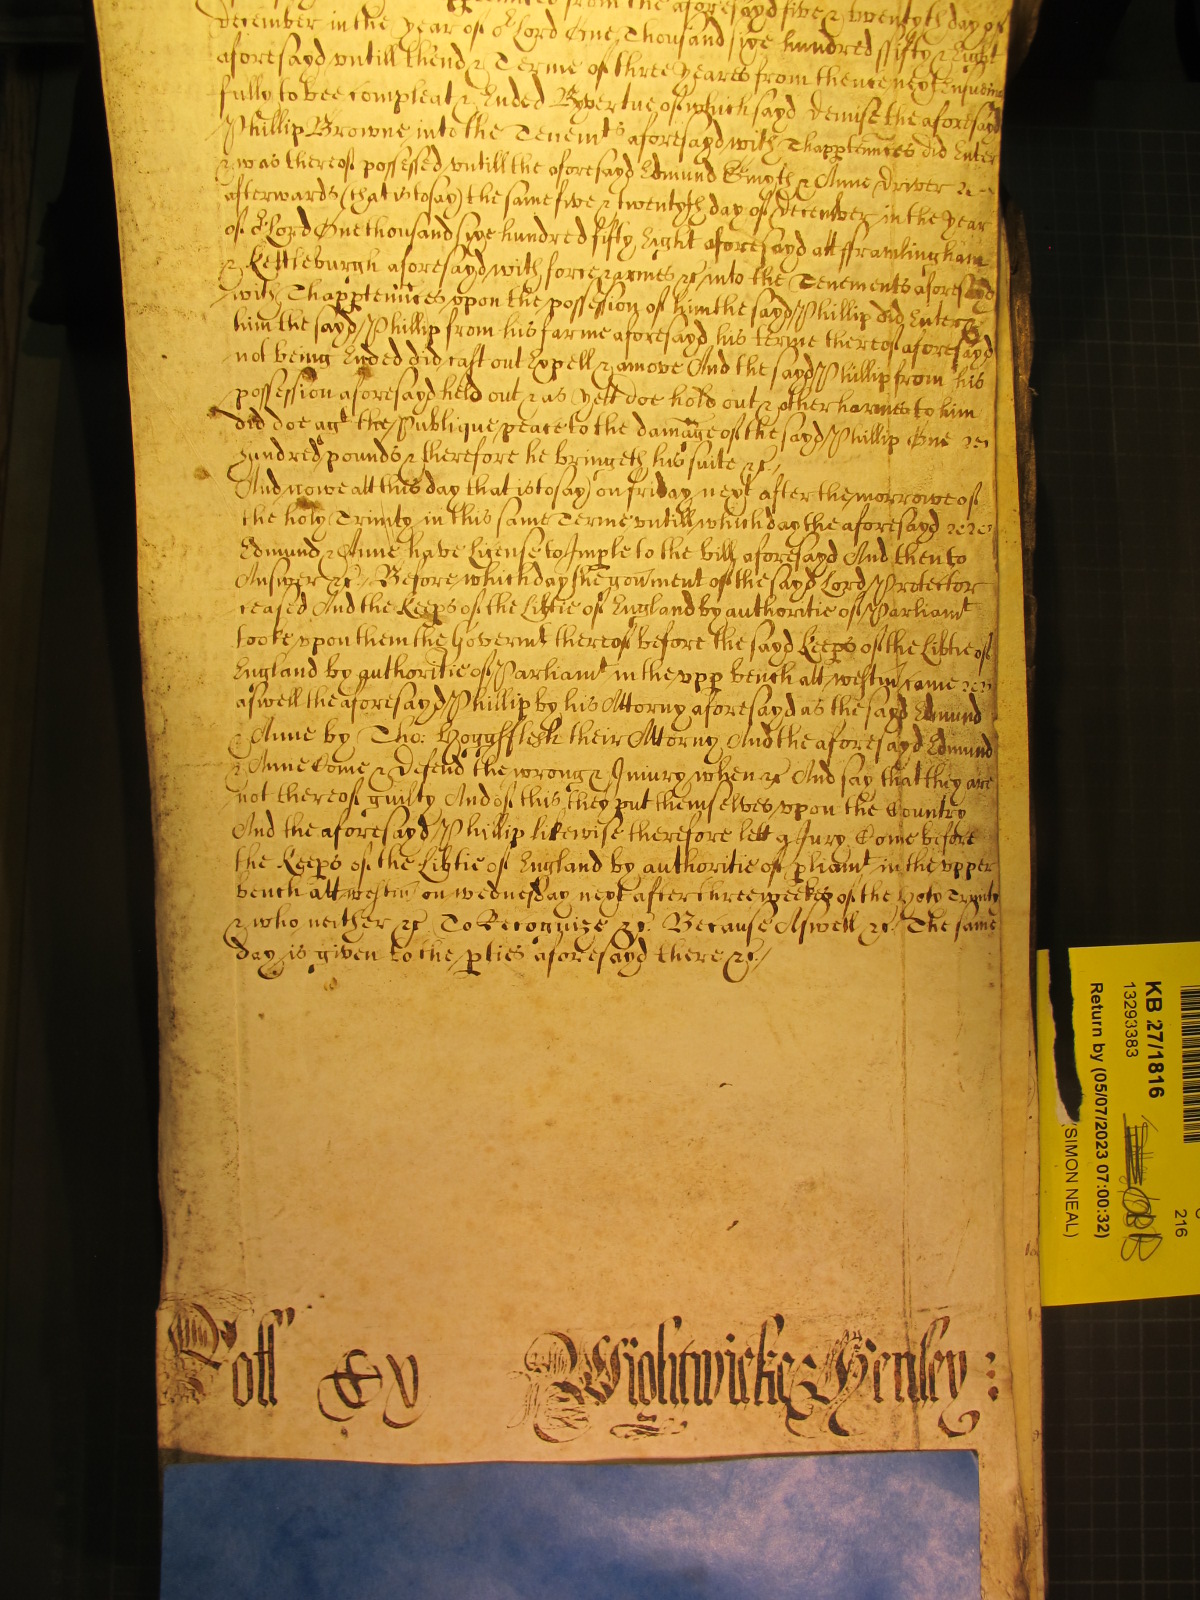 from the aforesayd five & twentyth day of
December in the year of oʳ Lord One Thousand sixe hundred ffifty & Eight
aforesayd untill thend & Terme of three yeares from thence next ensueing
fully to bee compleat & Ended By vertue of which sayd demise the aforesayd
Phillip Browne into the Tenemᵗˢ aforesayd with Thapptennces did Enter
& was thereof possessed untill the aforesayd Edmund Smyth & Anne Driver
afterwards (that is to say) the same five & twentyth day of December in the year
of oʳ Lord One thousand sixe hundred fifty Eight aforesayd att fframlingham
& Kettleburgh aforesayd with force & armes &c into the Tenements aforesayd
with Thapptennces upon the possession of him the sayd Phillip did Enter &
him the sayd Phillip from his farme aforesayd his terme thereof aforesayd
not being Ended did cast out Expell & amove And the sayd Phillip from his
possession aforesayd held out & as yett doe hold out & other harmes to him
did doe agᵗ the Publique peace to the damage of the sayd Phillip One
hundred pounds & therefore he bringeth his suite &c
And nowe att this day that is to say on friday next after the morrowe of
the holy Trinity in this same Terme untill which day the aforesayd
Edmund & Anne have License to Imple to the bill aforesayd And then to
Answer &c Before which day the govment of the sayd Lord Protector
ceased And the Keeps of the Libtie of England by authoritie of Parliamᵗ
tooke upon them the Governmᵗ thereof before the sayd Keeps of the Libtie of
England by authoritie of Parliamᵗ in the upp bench att westm came
aswell the aforesayd Phillip by his Attorny aforesayd as the sayd Edmund
& Anne by Tho: Hoggfflesh their Attorny And the aforesayd Edmund
& Anne Come & Defend the wrong & Injury when &c And say that they are
not thereof guilty And of this they put themselves upon the Country
And the aforesayd Phillip likewise therefore lett a Jury Come before
the Keeps of the Libtie of England by authoritie of pliamᵗ in the upper
bench att westm on wednesday next after three weekes of the Holy Trinity
& who neither &c To Recognize &c Because Aswell &c The same
day is given to the pties aforesayd there &c
Roll Ex Wightwicke Henley :
KB 27/1816
13293383
216
Return by (05/07/2023 07:00:32)
(SIMON NEAL)